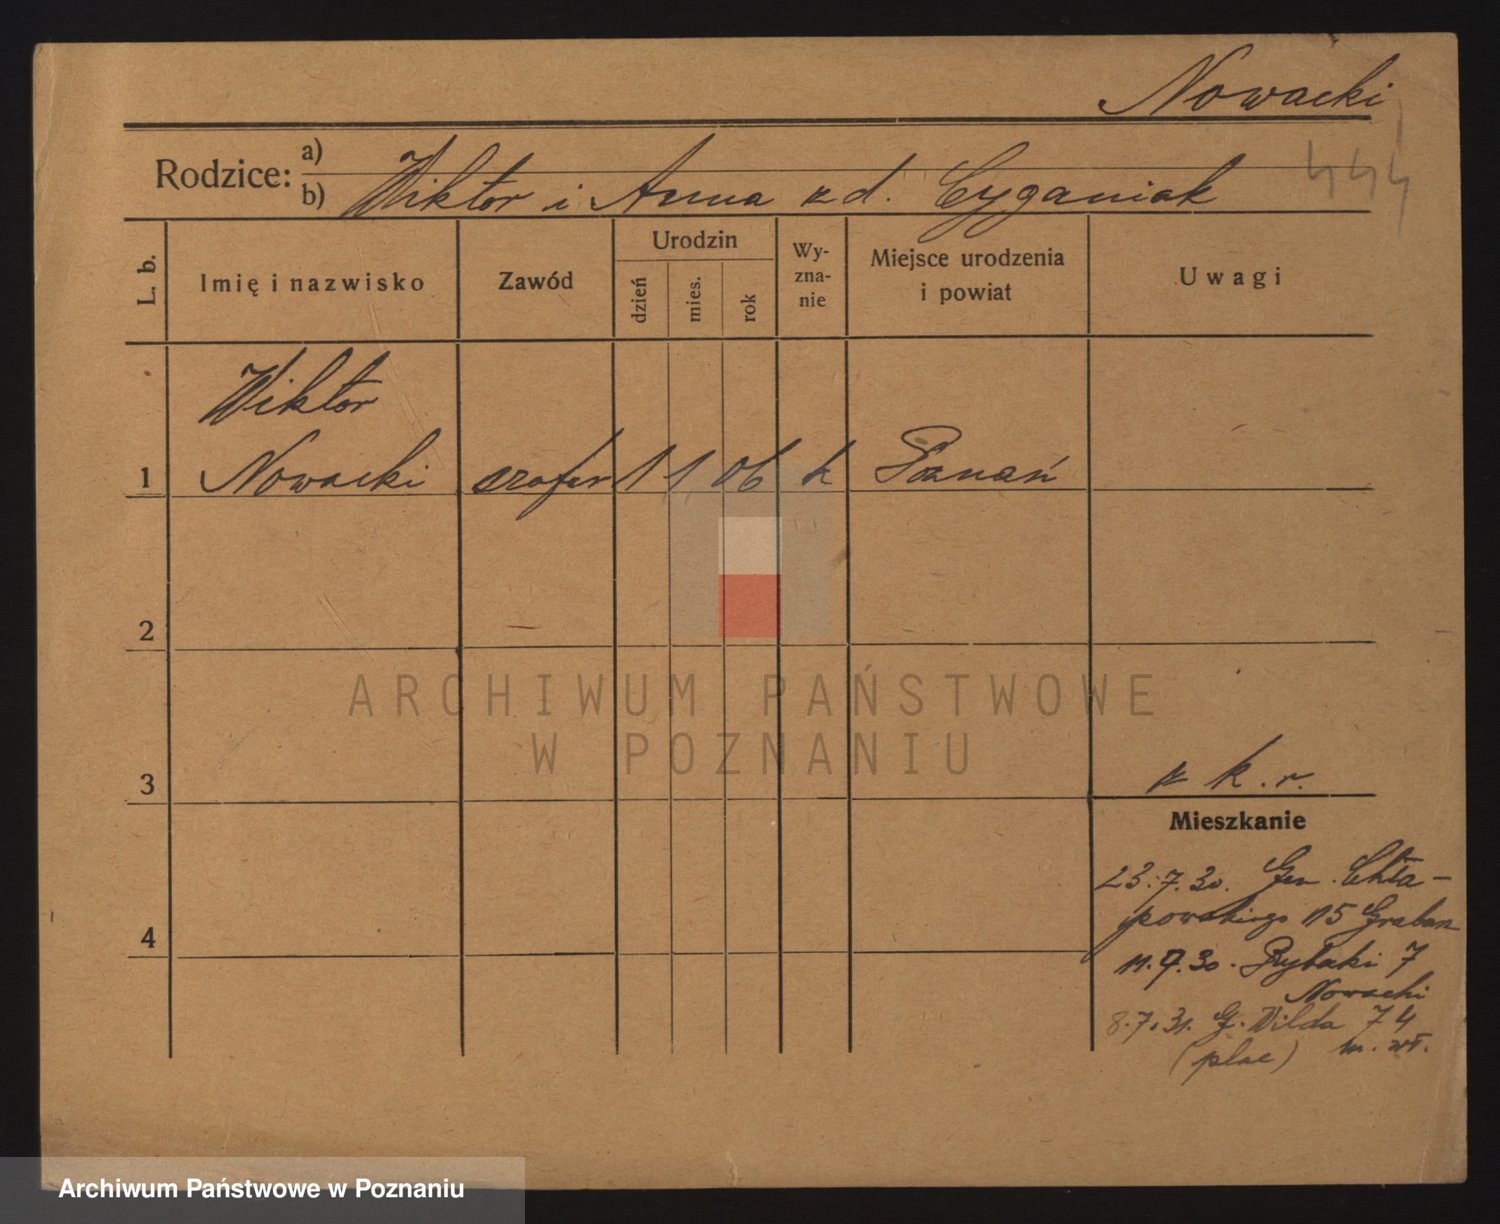 Nowacki
444
Rodzice: a)
b) Wiktor i Anna z d. Cyganiak
L. b.
Imię i nazwisko
Zawód
Urodzin
dzień
mies.
rok
Wy-
zna-
nie
Miejsce urodzenia
i powiat
Uwagi
Wiktor
1 Nowacki szofer 1 1 06 k Poznań
2
ARCHIWUM PAŃSTWOWE
W POZNANIU
3 z k. r.
Mieszkanie
23.7.30. Gen. Chła-
powskiego 15 Graban
4
11.9.30. Rybaki 7
Nowacki
8.7.31. G. Wilda 74
(plac) m. wł.
Archiwum Państwowe w Poznaniu